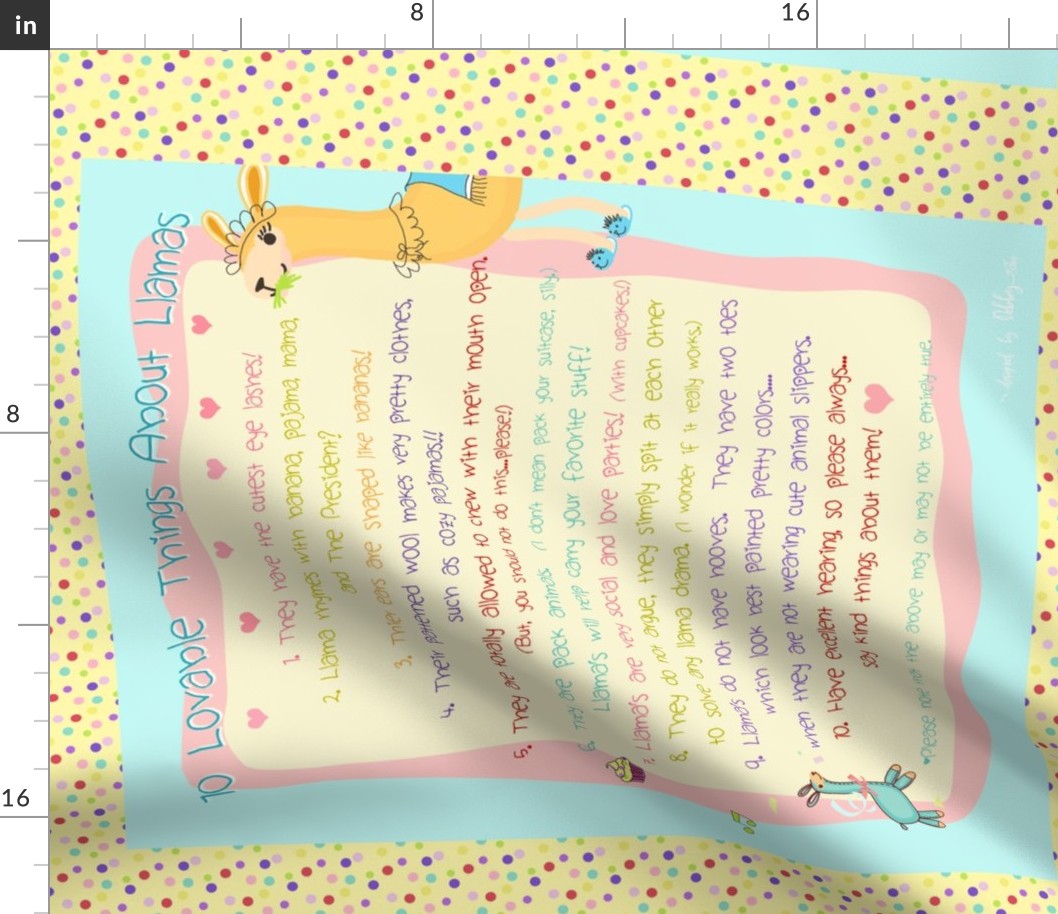 in
8
16
8
16
10 Lovable Things About Llamas
1. They have the cutest eye lashes!
2. Llama rhymes with banana, pajama, mama,
and The President?
3. Their ears are shaped like bananas!
4. Their patterned wool makes very pretty clothes,
such as cozy pajamas!!
5. They are totally allowed to chew with their mouth open.
(But, you should not do this...please!)
6. They are pack animals (I don't mean pack your suitcase, silly.)
Llama's will help carry your favorite stuff!
7. Llama's are very social and love parties! (With cupcakes!)
8. They do not argue, they simply spit at each other
to solve any llama drama. (I wonder if it really works.)
9. Llamas do not have hooves. They have two toes
which look best painted pretty colors....
when they are not wearing cute animal slippers.
10. Have excellent hearing, so please always....
say kind things about them!
Please note that the above may or may not be entirely true.
by